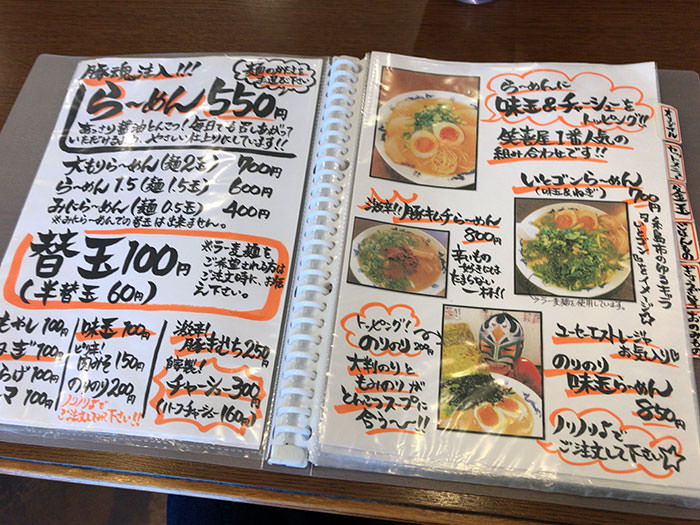 豚魂注入!!!
麺のかたさを
お選び下さい
らーめん550円
あっさり醤油とんこつ!毎日でも召しあがって
いただける、やさしい仕上りにしています!!
大もりらーめん(麺2玉) 700円
らーめん1.5(麺1.5玉) 600円
みにらーめん(麺0.5玉) 400円
※みにらーめんでの替玉は出来ません。
替玉100円
(半替玉60円)
※ラー麦麺を
ご希望される方は
ご注文時に、お伝
え下さい。
もやし100円
ねぎ100円
らげ100円
マ100円
味玉100円
ピリ辛!
肉みそ150円
のりのり200円
ノリノリ♪で
ご注文して下さい!!
激辛!
豚キムチ250円
自家製!
チャーシュー300円
(ハーフチャーシュー160円)
らーめんに
味玉&チャーシューを
トッピング!!
笑喜屋1番人気の
組み合わせです!!
激辛!!豚キムチらーめん
800円
辛いもの
好きには
たまらない
一杯!!
いとゴンらーめん
(味玉&ねぎ)
700円
糸島市のゆるキャラ
※ラー麦麺を使用しています。
トッピング!
のりのり200円
大判のりと
もみのりが
とんこつスープに
合う~!!
ユーセーエストレージャ
お気に入り
のりのり
味玉らーめん
850円
ノリノリ♪で
ご注文して下さい☆